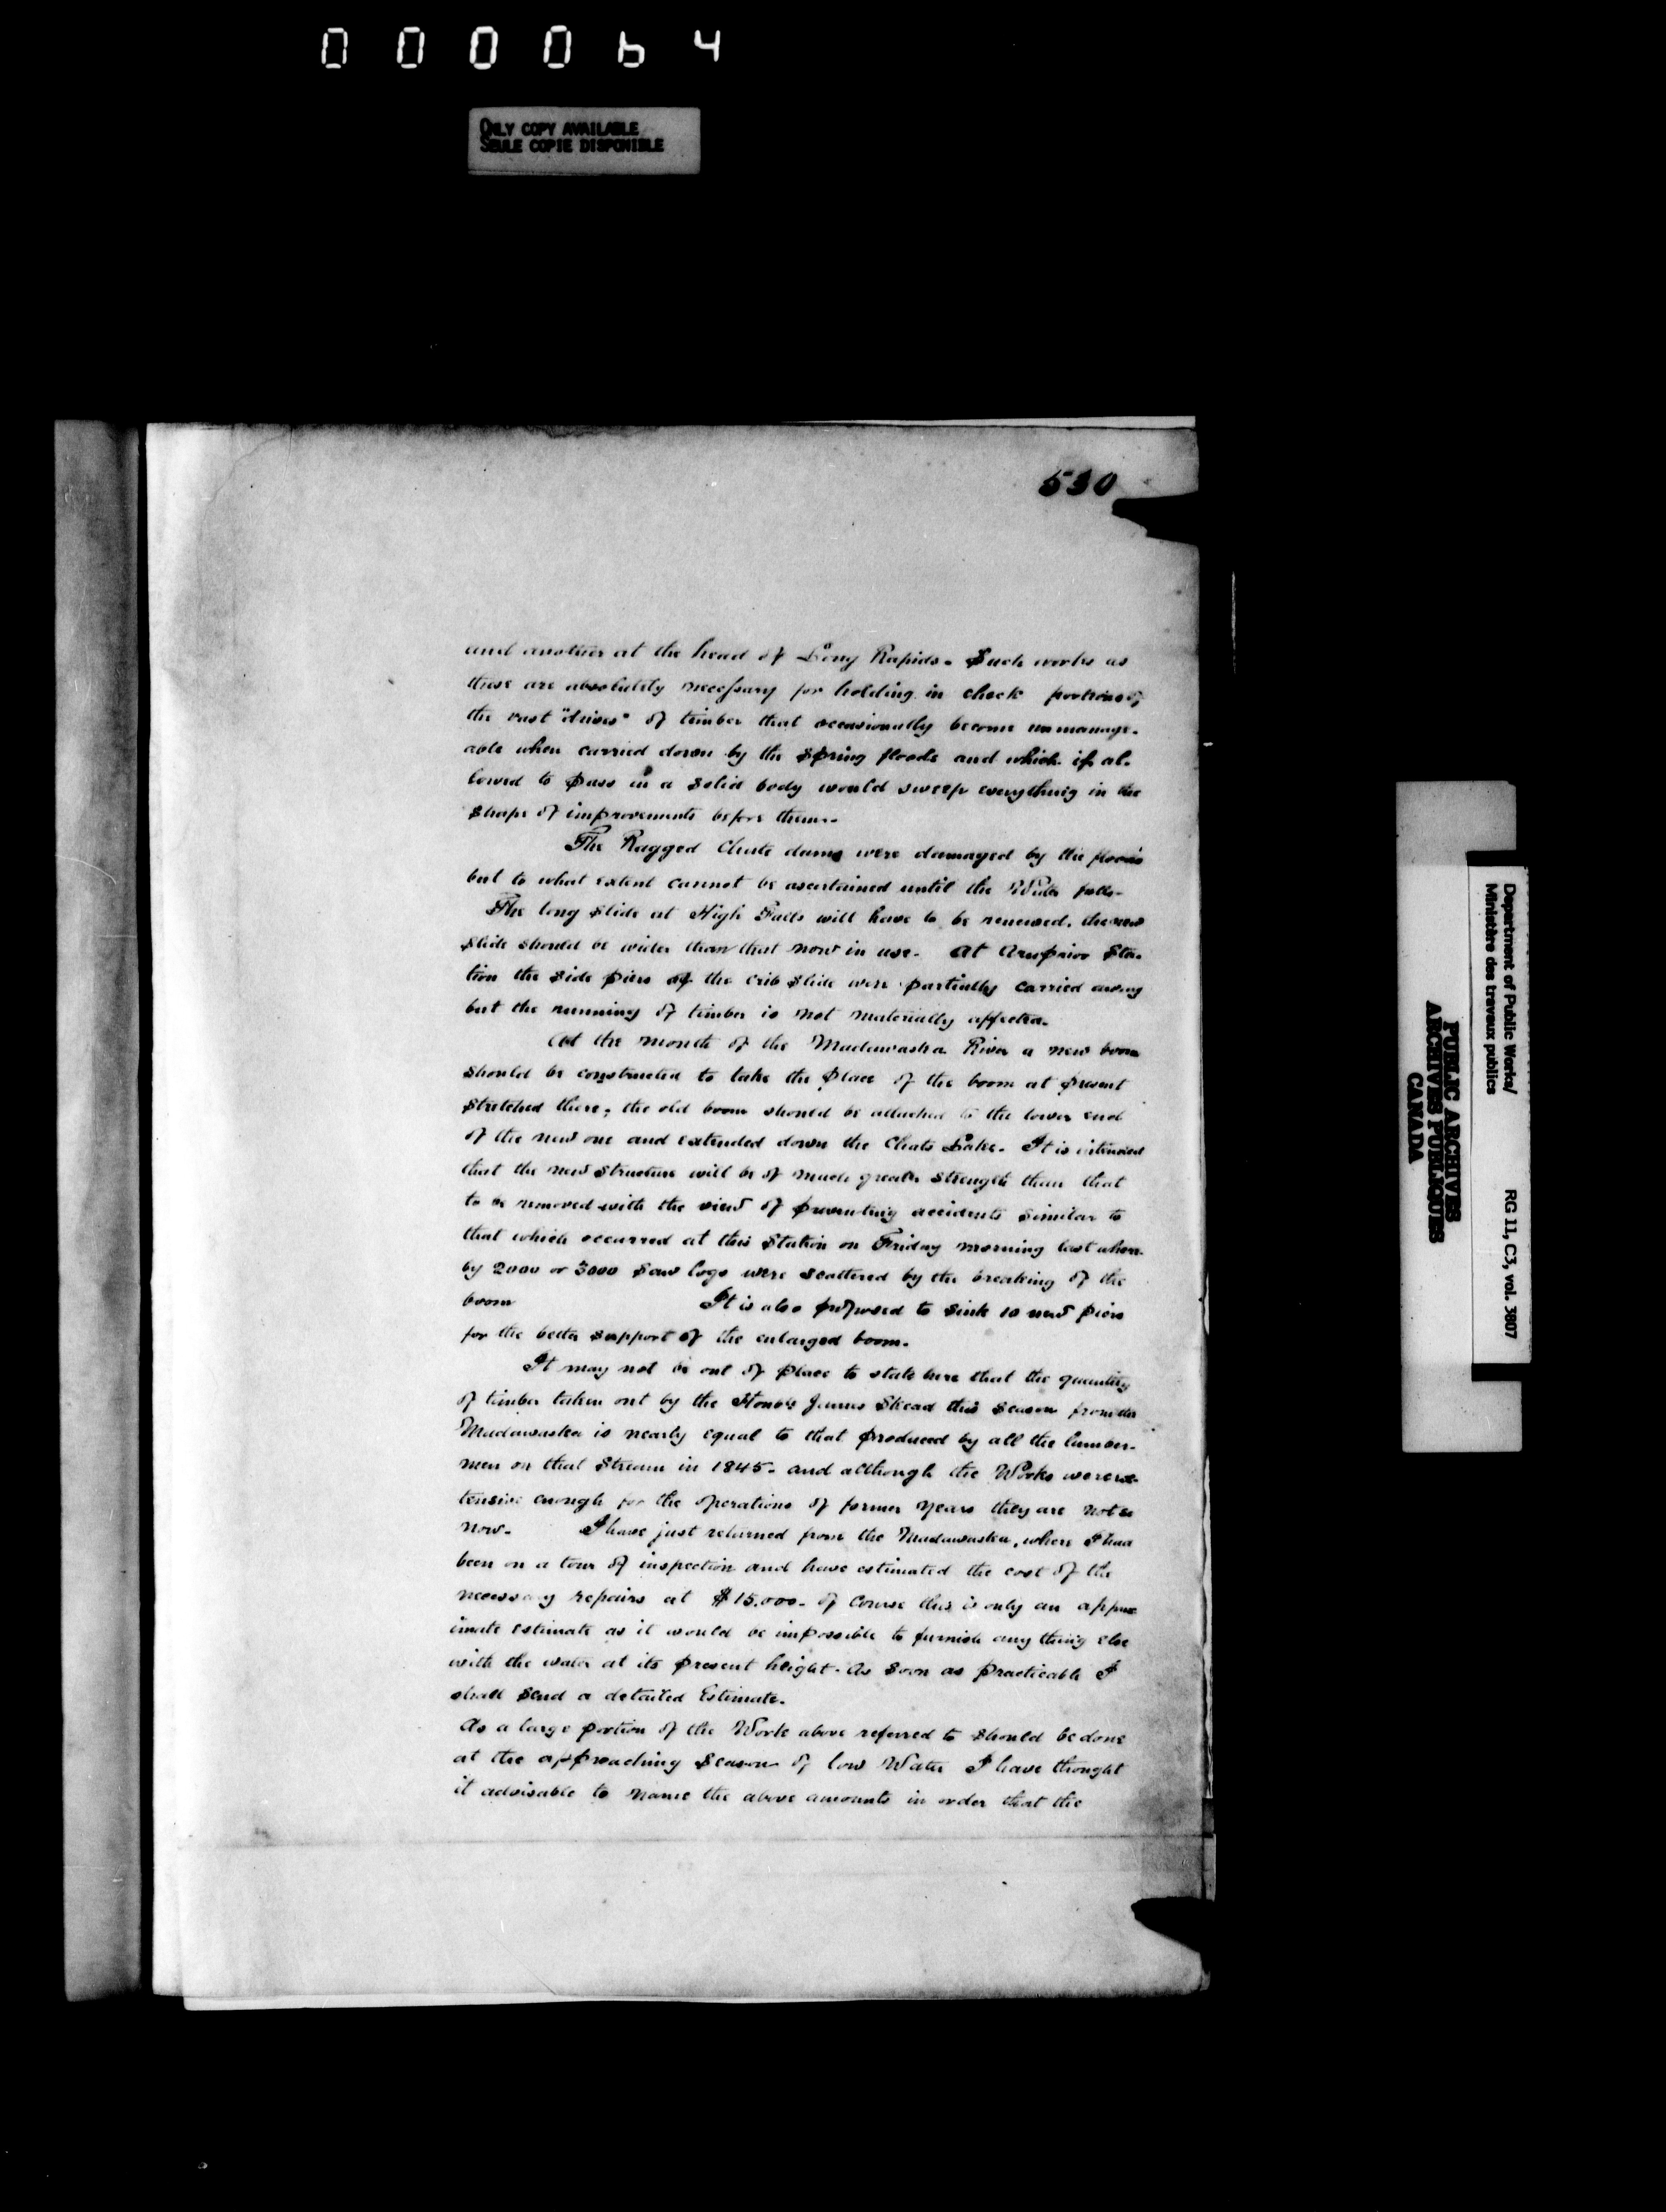 000064
ONLY COPY AVAILABLE
SEULE COPIE DISPONIBLE
530
and another at the head of Long Rapids. Such works as
these are absolutely necessary for holding in check portions of
the vast "drives" of timber that occasionally become unmanage-
able when carried down by the spring floods and which if al-
lowed to pass in a solid body would sweep everything in the
shape of improvements before them.
The Ragged Chute dams were damaged by the floods
but to what extent cannot be ascertained until the Water falls.
The long slide at High Falls will have to be renewed. the new
slide should be wider than that now in use. At Arnprior Sta-
tion the side piers of the crib slide were partially carried away
but the running of timber is not materially affected.
At the mouth of the Madawaska River a new boom
should be constructed to take the place of the boom at present
stretched there; the old boom should be attached to the lower end
of the new one and extended down the Chats Lake. It is intended
that the new structure will be of much greater strength than that
to be removed with the view of preventing accidents similar to
that which occurred at this Station on Friday morning last when-
by 2000 or 3000 saw logs were scattered by the breaking of the
boom It is also proposed to sink 10 new piers
for the better support of the enlarged boom.
It may not be out of place to state here that the quantity
of timber taken out by the Honble James Skead this season from the
Madawaska is nearly equal to that produced by all the lumber-
men on that Stream in 1845. and although the Works were ex-
tensive enough for the operations of former years they are not so
now. I have just returned from the Madawaska, where I had
been on a tour of inspection and have estimated the cost of the
necessary repairs at $15,000. Of course this is only an approx
imate estimate as it would be impossible to furnish any thing else
with the water at its present height. As soon as practicable I
shall send a detailed Estimate.
As a large portion of the Work above referred to should be done
at the approaching season of low Water I have thought
it advisable to name the above amounts in order that the
Department of Public Works/
Ministère des travaux publics
RG 11, C3, vol. 3807
PUBLIC ARCHIVES
ARCHIVES PUBLIQUES
CANADA